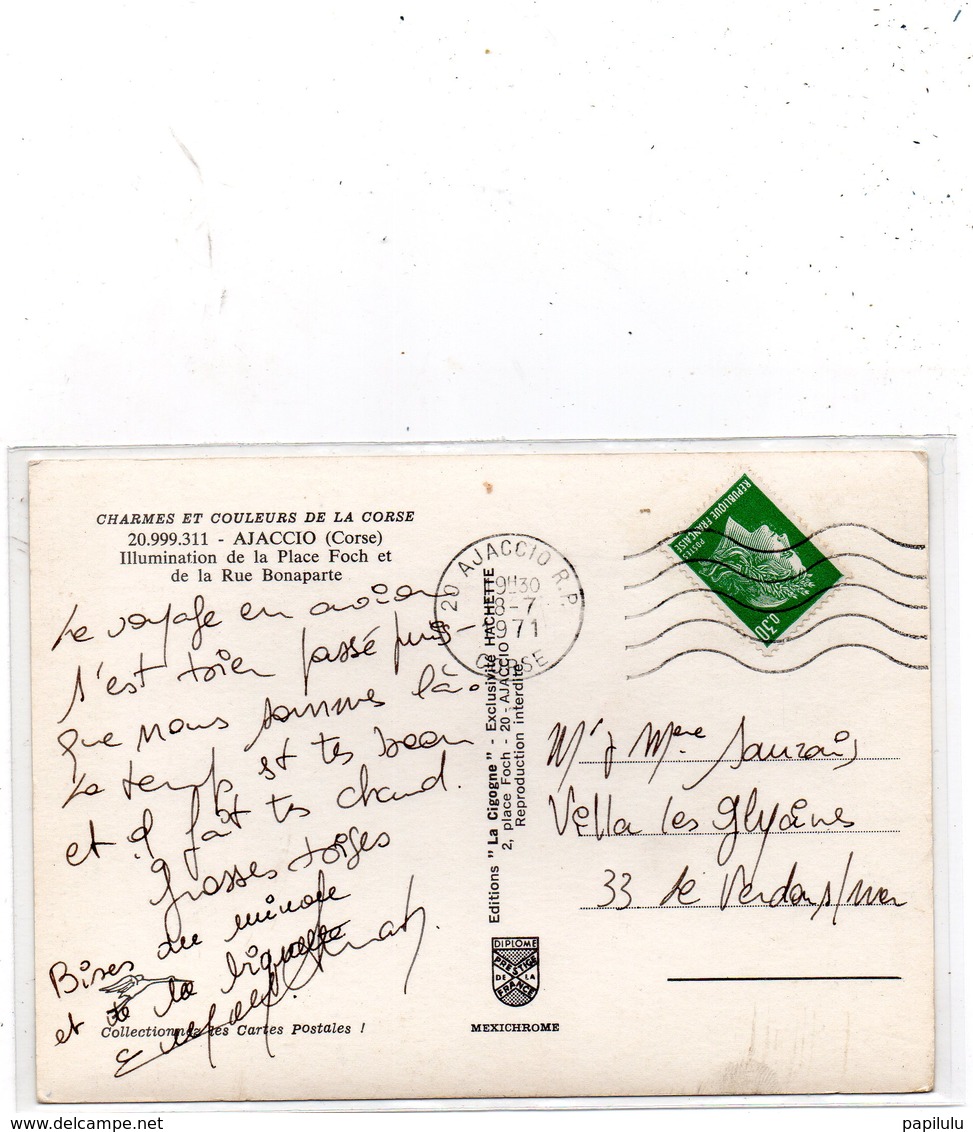 CHARMES ET COULEURS DE LA CORSE
20.999.311 - AJACCIO (Corse)
Illumination de la Place Foch et
de la Rue Bonaparte
Le voyage en avion
s'est bien passé puis-
que nous sommes là.
Le temps est tes beau
et il fait tes chaud.
Grosses bises
Bises du minou
et de la biquette
Collectionnez les Cartes Postales !
Editions "La Cigogne" - Exclusivité HACHETTE
2, place Foch - 20 - AJACCIO
Reproduction interdite
DIPLOME
PRESTIGE
DE LA
FRANCE
MEXICHROME
20 AJACCIO R.P.
9H30
8-7
1971
CORSE
REPUBLIQUE FRANÇAISE
POSTES
0,30
Mr & Mme
Villa les Glycines
33 Le Verdon s/mer
papilulu